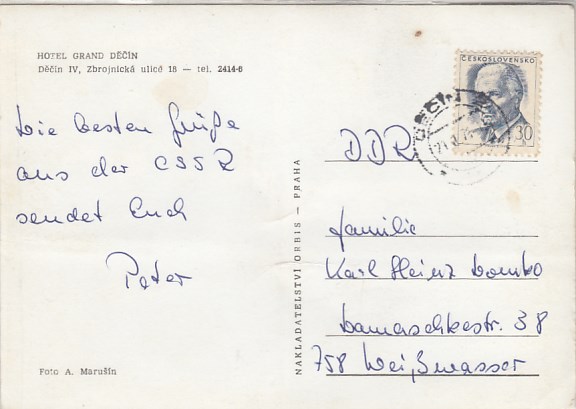 HOTEL GRAND DĚČÍN
Děčín IV, Zbrojnická ulice 18 — tel. 2414-6
Die besten Grüße
aus der CSSR
sendet Euch
Peter
Foto A. Marušin
NAKLADATELSTVÍ ORBIS — PRAHA
ČESKOSLOVENSKO
30
DĚČÍN
DDR
Familie
Karl Heinz
Damaschkestr. 38
758 Weißwasser